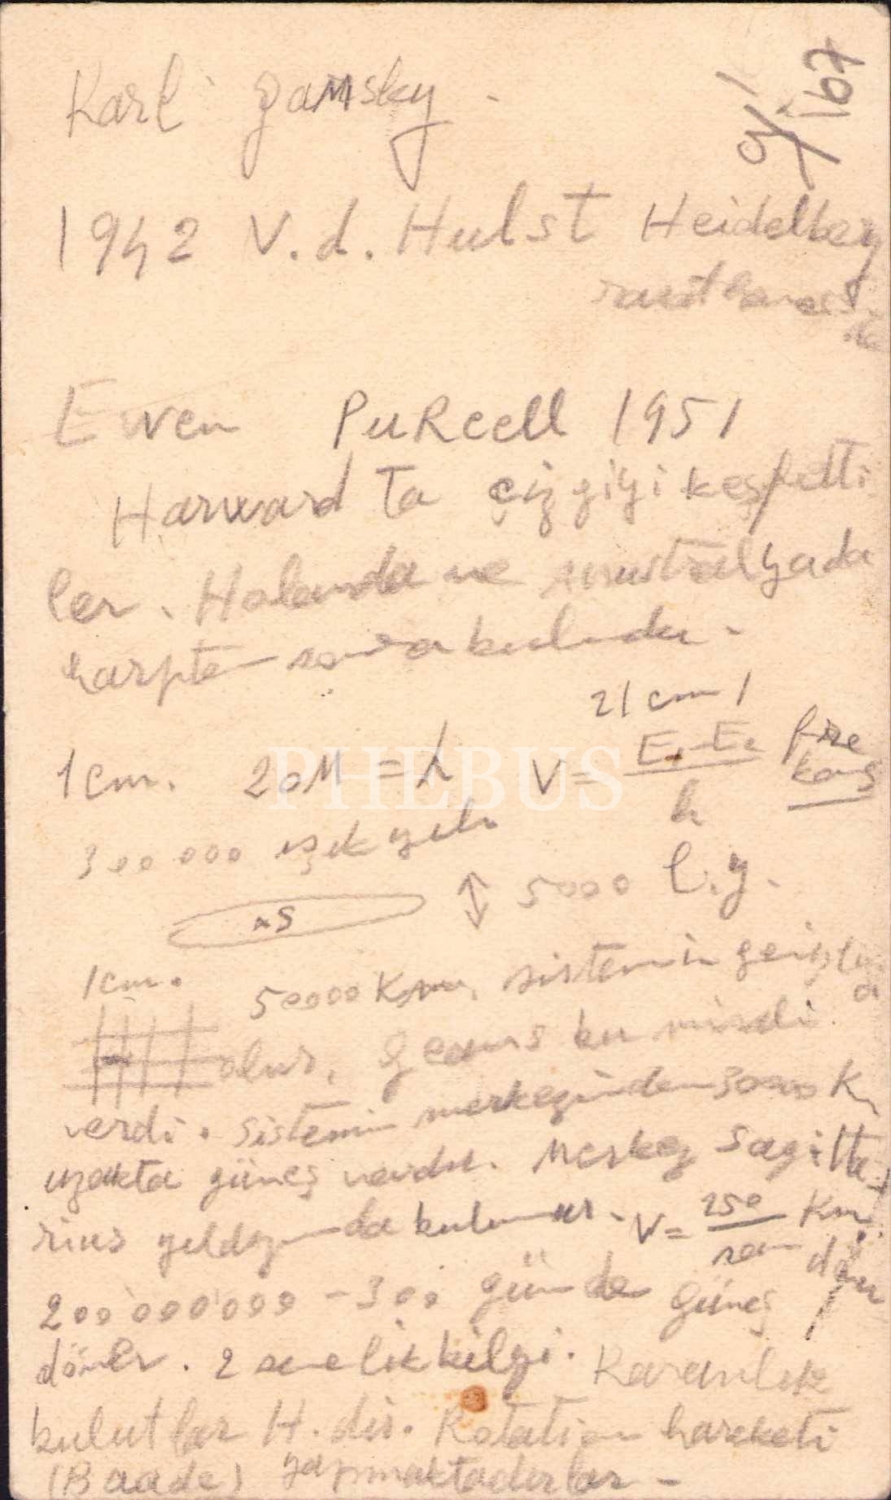 Karl Jansky -
9/167
1942 V.d. Hulst Heidelberg
rasathanesi
Ewen PuRcell 1951
Harward Ta çizgiyi keşfetti
ler. Holanda ve Avustralyada
harpten sonra bulundu -
21 cm
1cm. 20M = λ V = E₁-E₂ / h fre
kans
300 000 ışık yılı
xS ↕ 5000 l.y.
1cm. 50000 Km. sistemin genişliği
olur, Geans bu misali
verdi. Sistemin merkezinden 30000 K
uzakta güneş vardır. Merkez Sagitta-
rius yıldızında bulunur. V = 250 Km / san
200'000'000 - 300 günde güneş
döner. 2 senelik bilgi. Karanlık
bulutlar H. dir. Rotation hareketi
(Baade) yapmaktadırlar -
PHEBUS